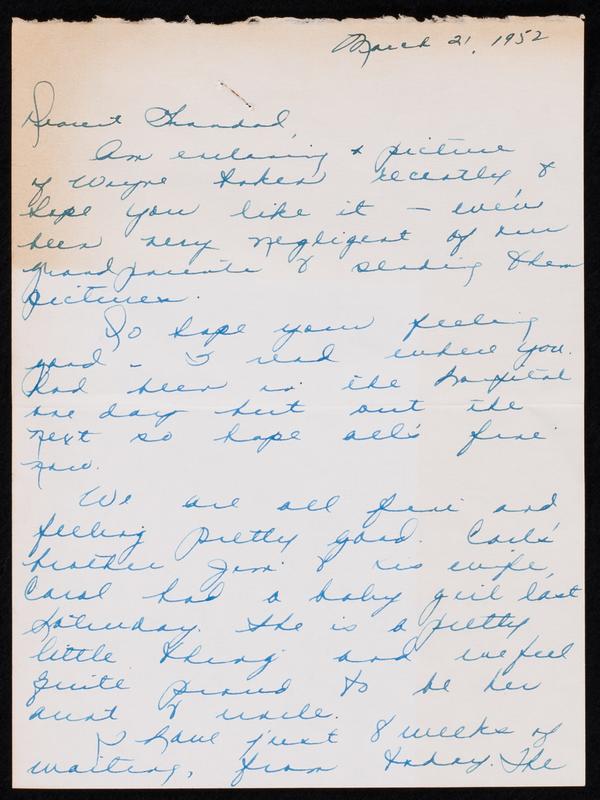 March 21, 1952
Dearest Grandad,
Am enclosing a picture
of Wayne taken recently &
hope you like it – we've
been very negligent of our
grandparents & sending them
pictures.
Do hope your feeling
good – I read where you
had been in the hospital
one day but out the
next so hope all's fine
now.
We are all fine and
feeling pretty good. Carl's
brother Jim & his wife,
Carol had a baby girl last
Saturday. She is a pretty
little thing and we feel
quite proud to be her
aunt & uncle.
I have just 8 weeks of
waiting, from today. The